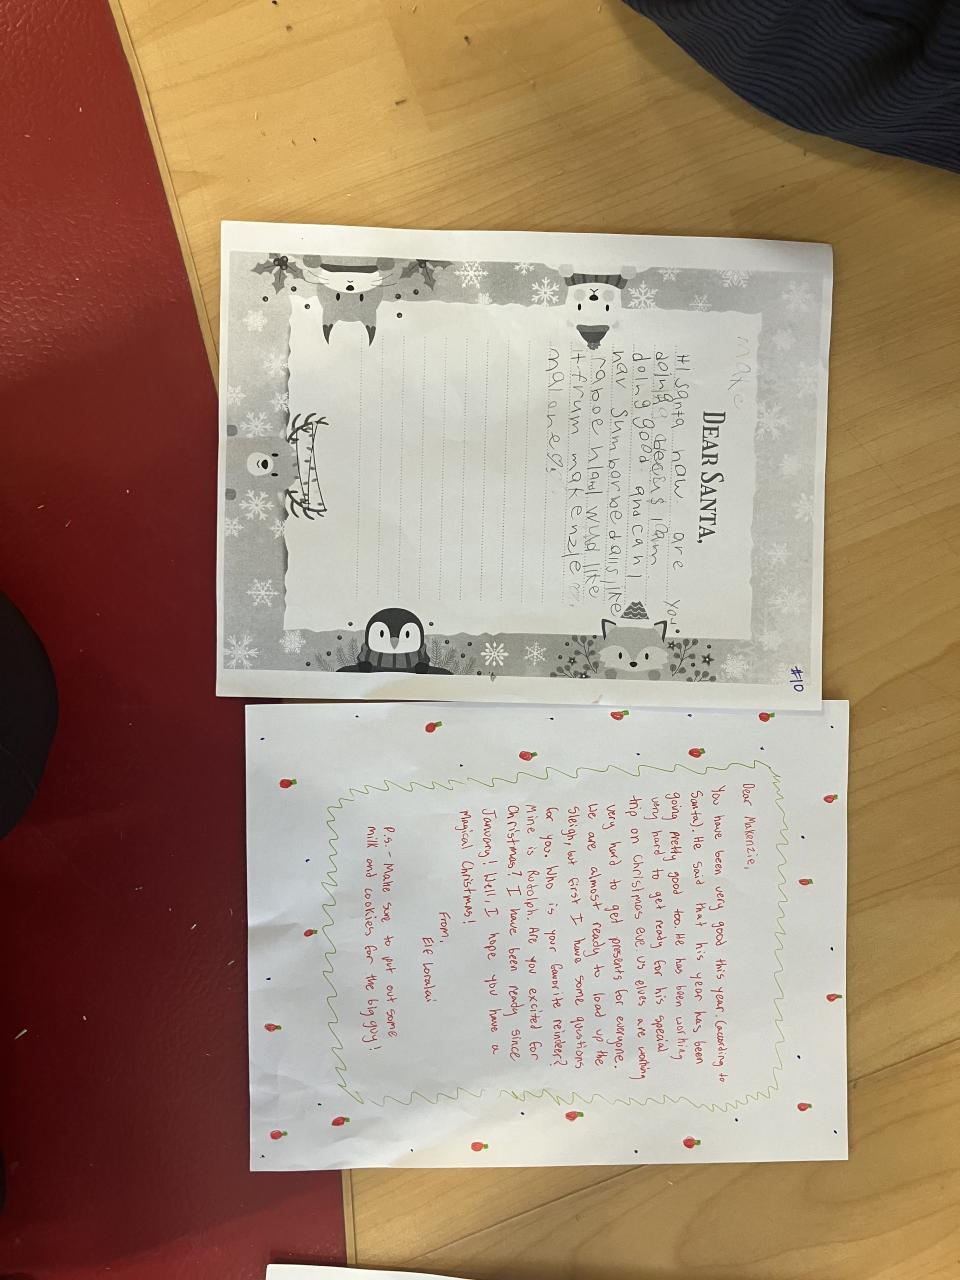 #10
make
DEAR SANTA,
Hi santa how are you
doing
doing good and can I
hav sum barbe dalls, like
raboe hland wud like
it frum makenzie
malone
Dear Makenzie,
You have been very good this year. (according to
Santa). He said that his year has been
going pretty good too. He has been working
very hard to get ready for his special
trip on christmas eve. us elves are working
very hard to get presents for everyone.
We are almost ready to load up the
sleigh, but first I have some questions
for you. Who is your favorite reindeer?
Mine is Rutolph. Are you excited for
Christmas? I have been ready since
January! Well, I hope you have a
magical Christmas!
From,
Elf Loralai
P.S. - Make sure to put out some
milk and cookies for the big guy!